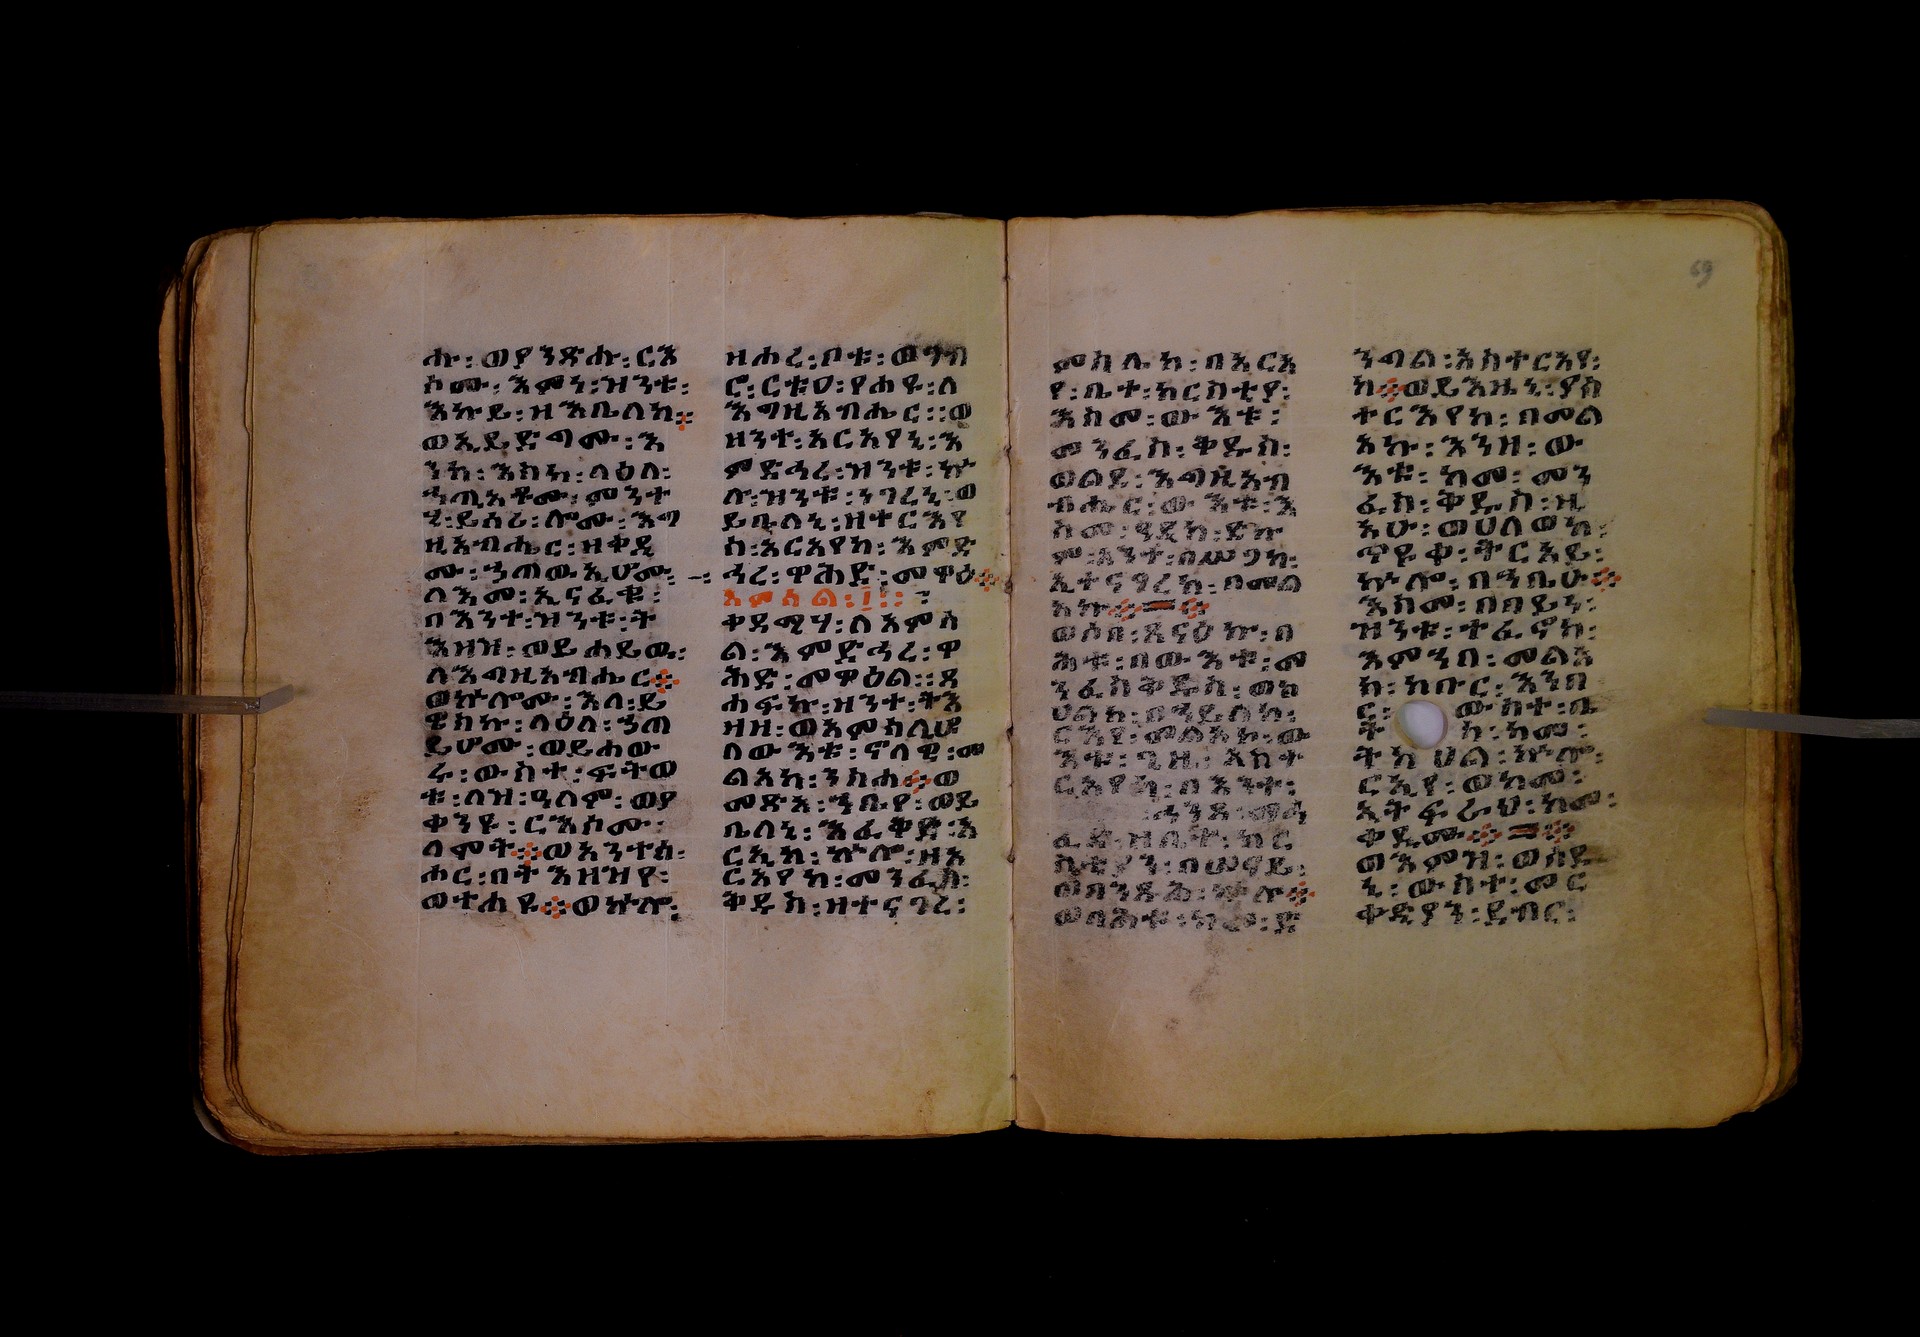 ሑ፡ወያንድሑ፡ርእ
ሶሙ፡እምነ፡ዝንቱ፡
እኩይ፡ዘእቤለከ፨
ወኢይድግሙ፡እ
ንከ፡እከኑ፡ላዕለ፡
ኃጢአቶሙ፡ምንተ
ኒ፡ይሰሪ፡ሎሙ፡እግ
ዚአብሔር፡ዘቀዲ
ሙ፡ኃጠውኢሆሙ፡
ለእመ፡ኢናፈቁ፡
በእንተ፡ዝንቱ፡ት
እዛዝ፡ወይሐይው፡
ለእግዚአብሔር፨
ወኵሎሙ፡እለ፡ይ
ዌክኩ፡ላዕለ፡ኃጠ
ይሆሙ፡ወይሐውሩ
ሩ፡ውስተ፡ፍትወ
ቱ፡ለዝ፡ዓለም፡ወያ
ቀንዩ፡ርእሶሙ፡
ለሞት፨ወአንተሰ፡
ሐር፡በትእዛዝየ፡
ወተሐዩ፨ወኵሎ፡
ዘሐረ፡ቦቱ፡ወገብ
ሮ፡ርቱዐ፡የሐዩ፡ለ
እግዚአብሔር፡፡ወ
ዘንተ፡አርአየኒ፡እ
ምድኅረ፡ዝንቱ፡ኵ
ሎ፡ዝንቱ፡ነገረኒ፡ወ
ይቤለኒ፡ዘተርእየ
ከ፡አርአየከ፡እምድ
ኅረ፡ዋሕድ፡መዋዕ፨
አምሳል፡፲፡፡
ቀዳሚሃ፡ለአምሳ
ል፡እምድኅረ፡ዋ
ሕድ፡መዋዕል፡፡ጸ
ሐፍኩ፡ዘንተ፡ትእ
ዛዘ፡ወአምሳሊሆ
ለውእቱ፡ኖላዊ፡መ
ልአከ፡ንስሐ፨ወ
መጽአ፡ኀቤየ፡ወይ
ቤለኒ፡እፈቅድ፡አ
ርኢከ፡ኵሎ፡ዘአ
ርአየከ፡መንፈስ፡
ቅዱስ፡ዘተናገረ፡
ምስሌከ፡በአርአ
ያ፡ቤተ፡ክርስቲያ፡
እስመ፡ውእቱ፡
መንፈስ፡ቅዱስ፡
ወልደ፡እግዚአብ
ብሔር፡ውእቱ፡እ
ስመ፡ዓዲከ፡ድኩ
ም፡አንተ፡በሥጋከ፡
ኢተናገረከ፡በመል
አኩ፨፨
ወሶበ፡ጸናዕኩ፡በ
ሕቱ፡በውእቱ፡መ
ንፈስ፡ቅዱስ፡ወከ
ሀልከ፡በኀይለከ፡
ርእየ፡መልአከ፡ው
እቱ፡ጊዜ፡አስተ
ርአየከ፡በእንተ፡
ሕንጸ፡መኅ
ፈድ፡ዘቤተ፡ክር
ስቲያን፡በሠናይ፡
ወበንጹሕ፡ኵሎ፨
ወበሕቱ፡ከመ፡ድ
ንግል፡አስተርአየ፡
ከ፨ወይእዜኒ፡ያስ
ተርእየከ፡በመል
አኩ፡እንዘ፡ው
እቱ፡ከመ፡መን
ፈስ፡ቅዱስ፡ዚ
አሁ፡ወሀለወከ፡
ጥዩቀ፡ትርአይ፡
ኵሎ፡በኀቤሁ፨
እስመ፡በበይነ፡
ዝንቱ፡ተፈኖከ፡
እምኀበ፡መልአ
ከ፡ክቡር፡እንበ
ር፡ውስተ፡ቤ
ት ከ፡ከመ፡
ትክሀል፡ኵሎ፡
ርኢየ፡ወከመ፡
ኢትፍራህ፡ከመ፡
ቀዲሙ፨፨
ወእምዝ፡ወሰደ
ኒ፡ውስተ፡መር
ቀድያን፡ደብር፡
69